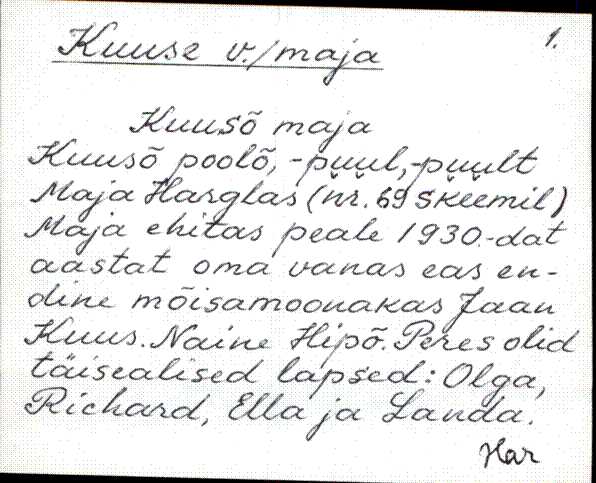 1.
Kuuse v./maja
Kuusõ maja
Kuusõ poolõ, -puul, -puult
Maja Harglas (nr. 69 skeemil)
Maja ehitas peale 1930.-dat
aastat oma vanas eas en-
dine mõisamoonakas Jaan
Kuus. Naine Hipõ. Peres olid
täisealised lapsed: Olga,
Richard, Ella ja Landa.
Har